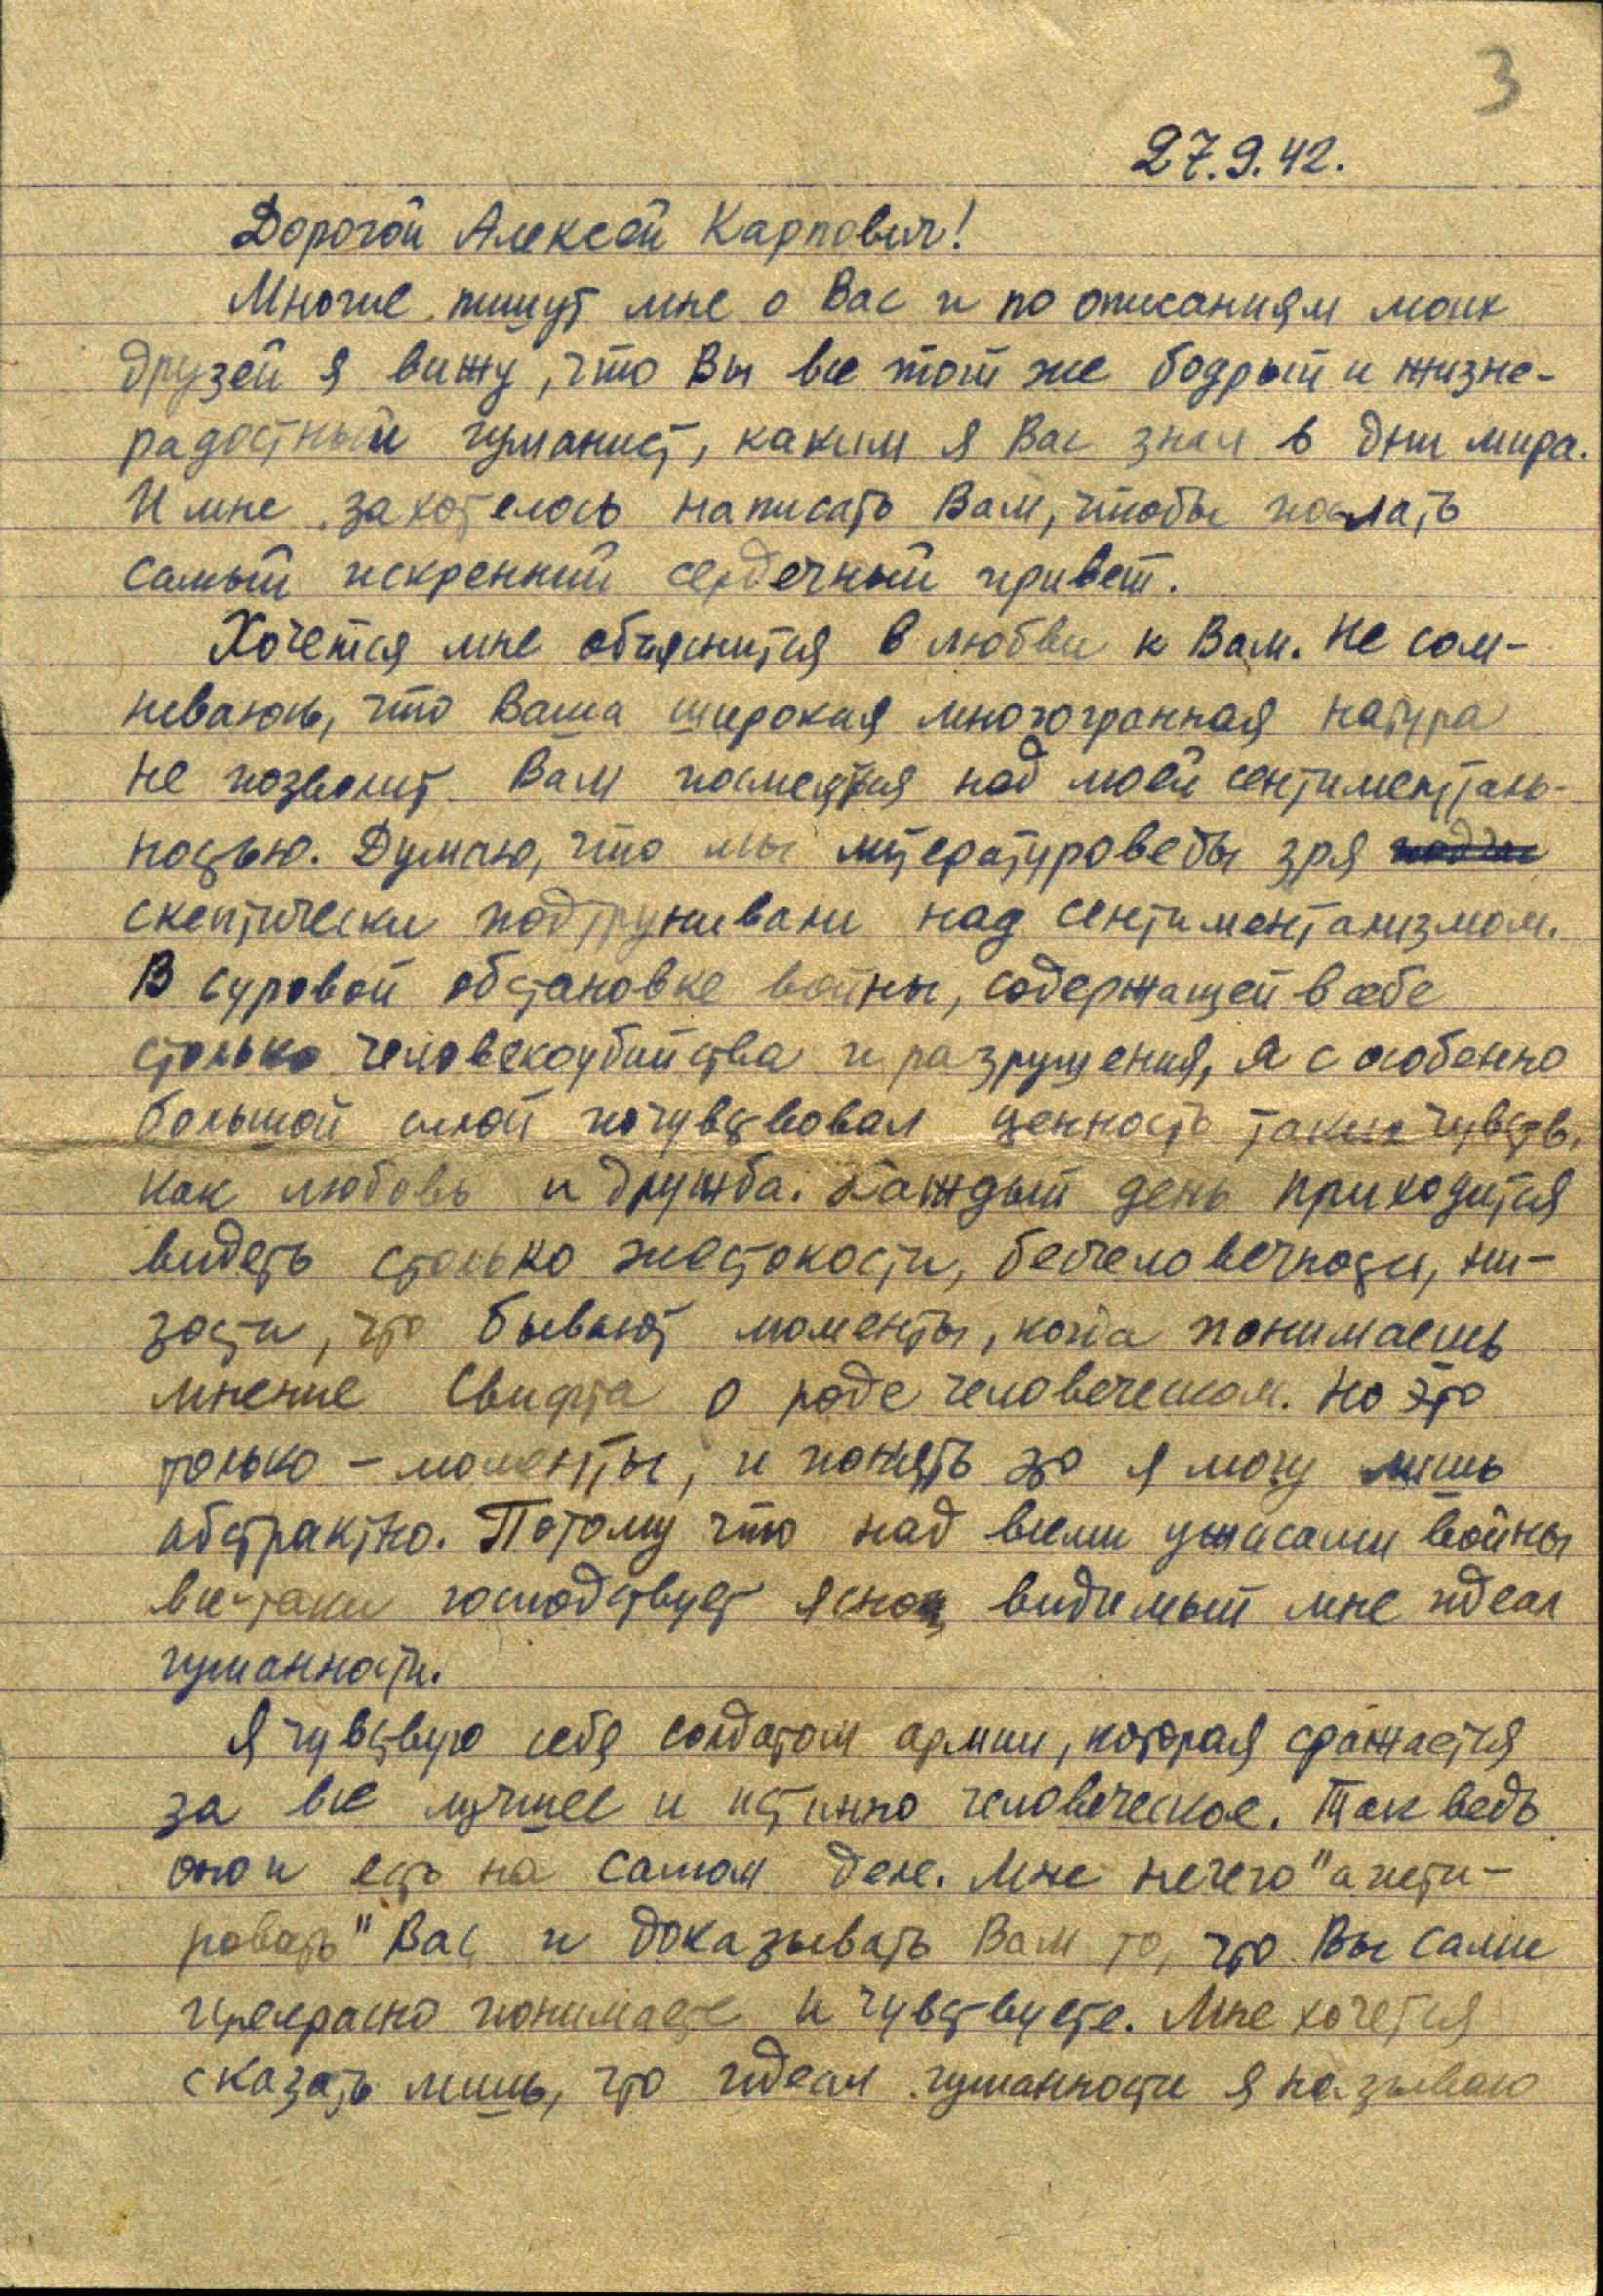 3
27.9.42.
Дорогой Алексей Карпович!
Многие пишут мне о Вас и по описаниям моих
друзей я вижу, что Вы все тот же бодрый и жизне-
радостный гуманист, каким я Вас знал в дни мира.
И мне захотелось написать Вам, чтобы послать
самый искренний сердечный привет.
Хочется мне объяснится в любви к Вам. Не сом-
неваюсь, что Ваша широкая многогранная натура
не позволит Вам посмеяться над моей сентименталь-
ностью. Думаю, что мы литературоведы зря
скептически подтрунивали над сентиментализмом.
В суровой обстановке войны, содержащей в себе
столько человекоубийства и разрушения, я с особенно
большой силой почувствовал ценность таких чувств,
как любовь и дружба. Каждый день приходится
видеть столько жестокости, бесчеловечности, ни-
зости, что бывают моменты, когда понимаешь
мнение Свифта о роде человеческом. Но это
только – моменты, и понять это я могу лишь
абстрактно. Потому что над всеми ужасами войны
все-таки господствует ясно видимый мне идеал
гуманности.
Я чувствую себя солдатом армии, которая сражается
за все лучшее и истинно человеческое. Так ведь
оно и есть на самом деле. Мне нечего "агити-
ровать" Вас и доказывать Вам то, что Вы сами
прекрасно понимаете и чувствуете. Мне хочется
сказать лишь, что идеал гуманности я называю